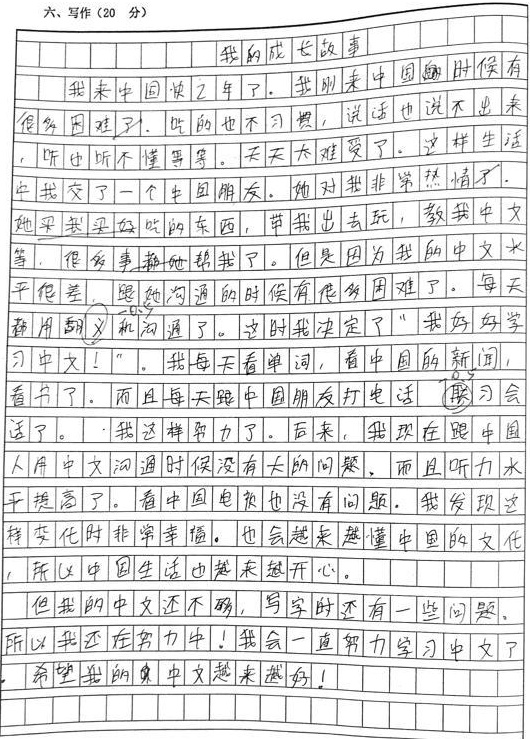 六、写作(20 分)
我的成长故事
我来中国快2年了。我刚来中国的时候有
很多困难了.吃的也不习惯,说话也说不出来
,听也听不懂等等。天天太难受了。这样生活
中我交了一个中国朋友。她对我非常热情了.
她买我买好吃的东西,带我出去玩,教我中文
等.很多事都她帮我了。但是因为我的中文水
平很差,跟她沟通的时候有很多困难了。每天
都用翻义机沟通了。这时我决定了"我好好学
-0.5
习中文!"。我每天看单词,看中国的新闻,
-0.5
看书了。而且每天跟中国朋友打电话 联习会
话了。我这样努力了。后来,我现在跟中国
人用中文沟通时候没有大的问题、而且听力水
平提高了。看中国电视也没有问题.我发现这
样变化时非常幸福。也会越来越懂中国的文化
,所以中国生活也越来越开心。
但我的中文还不够,写字时还有一些问题。
所以我还在努力中!我会一直努力学习中文了
.希望我的中文越来越好!